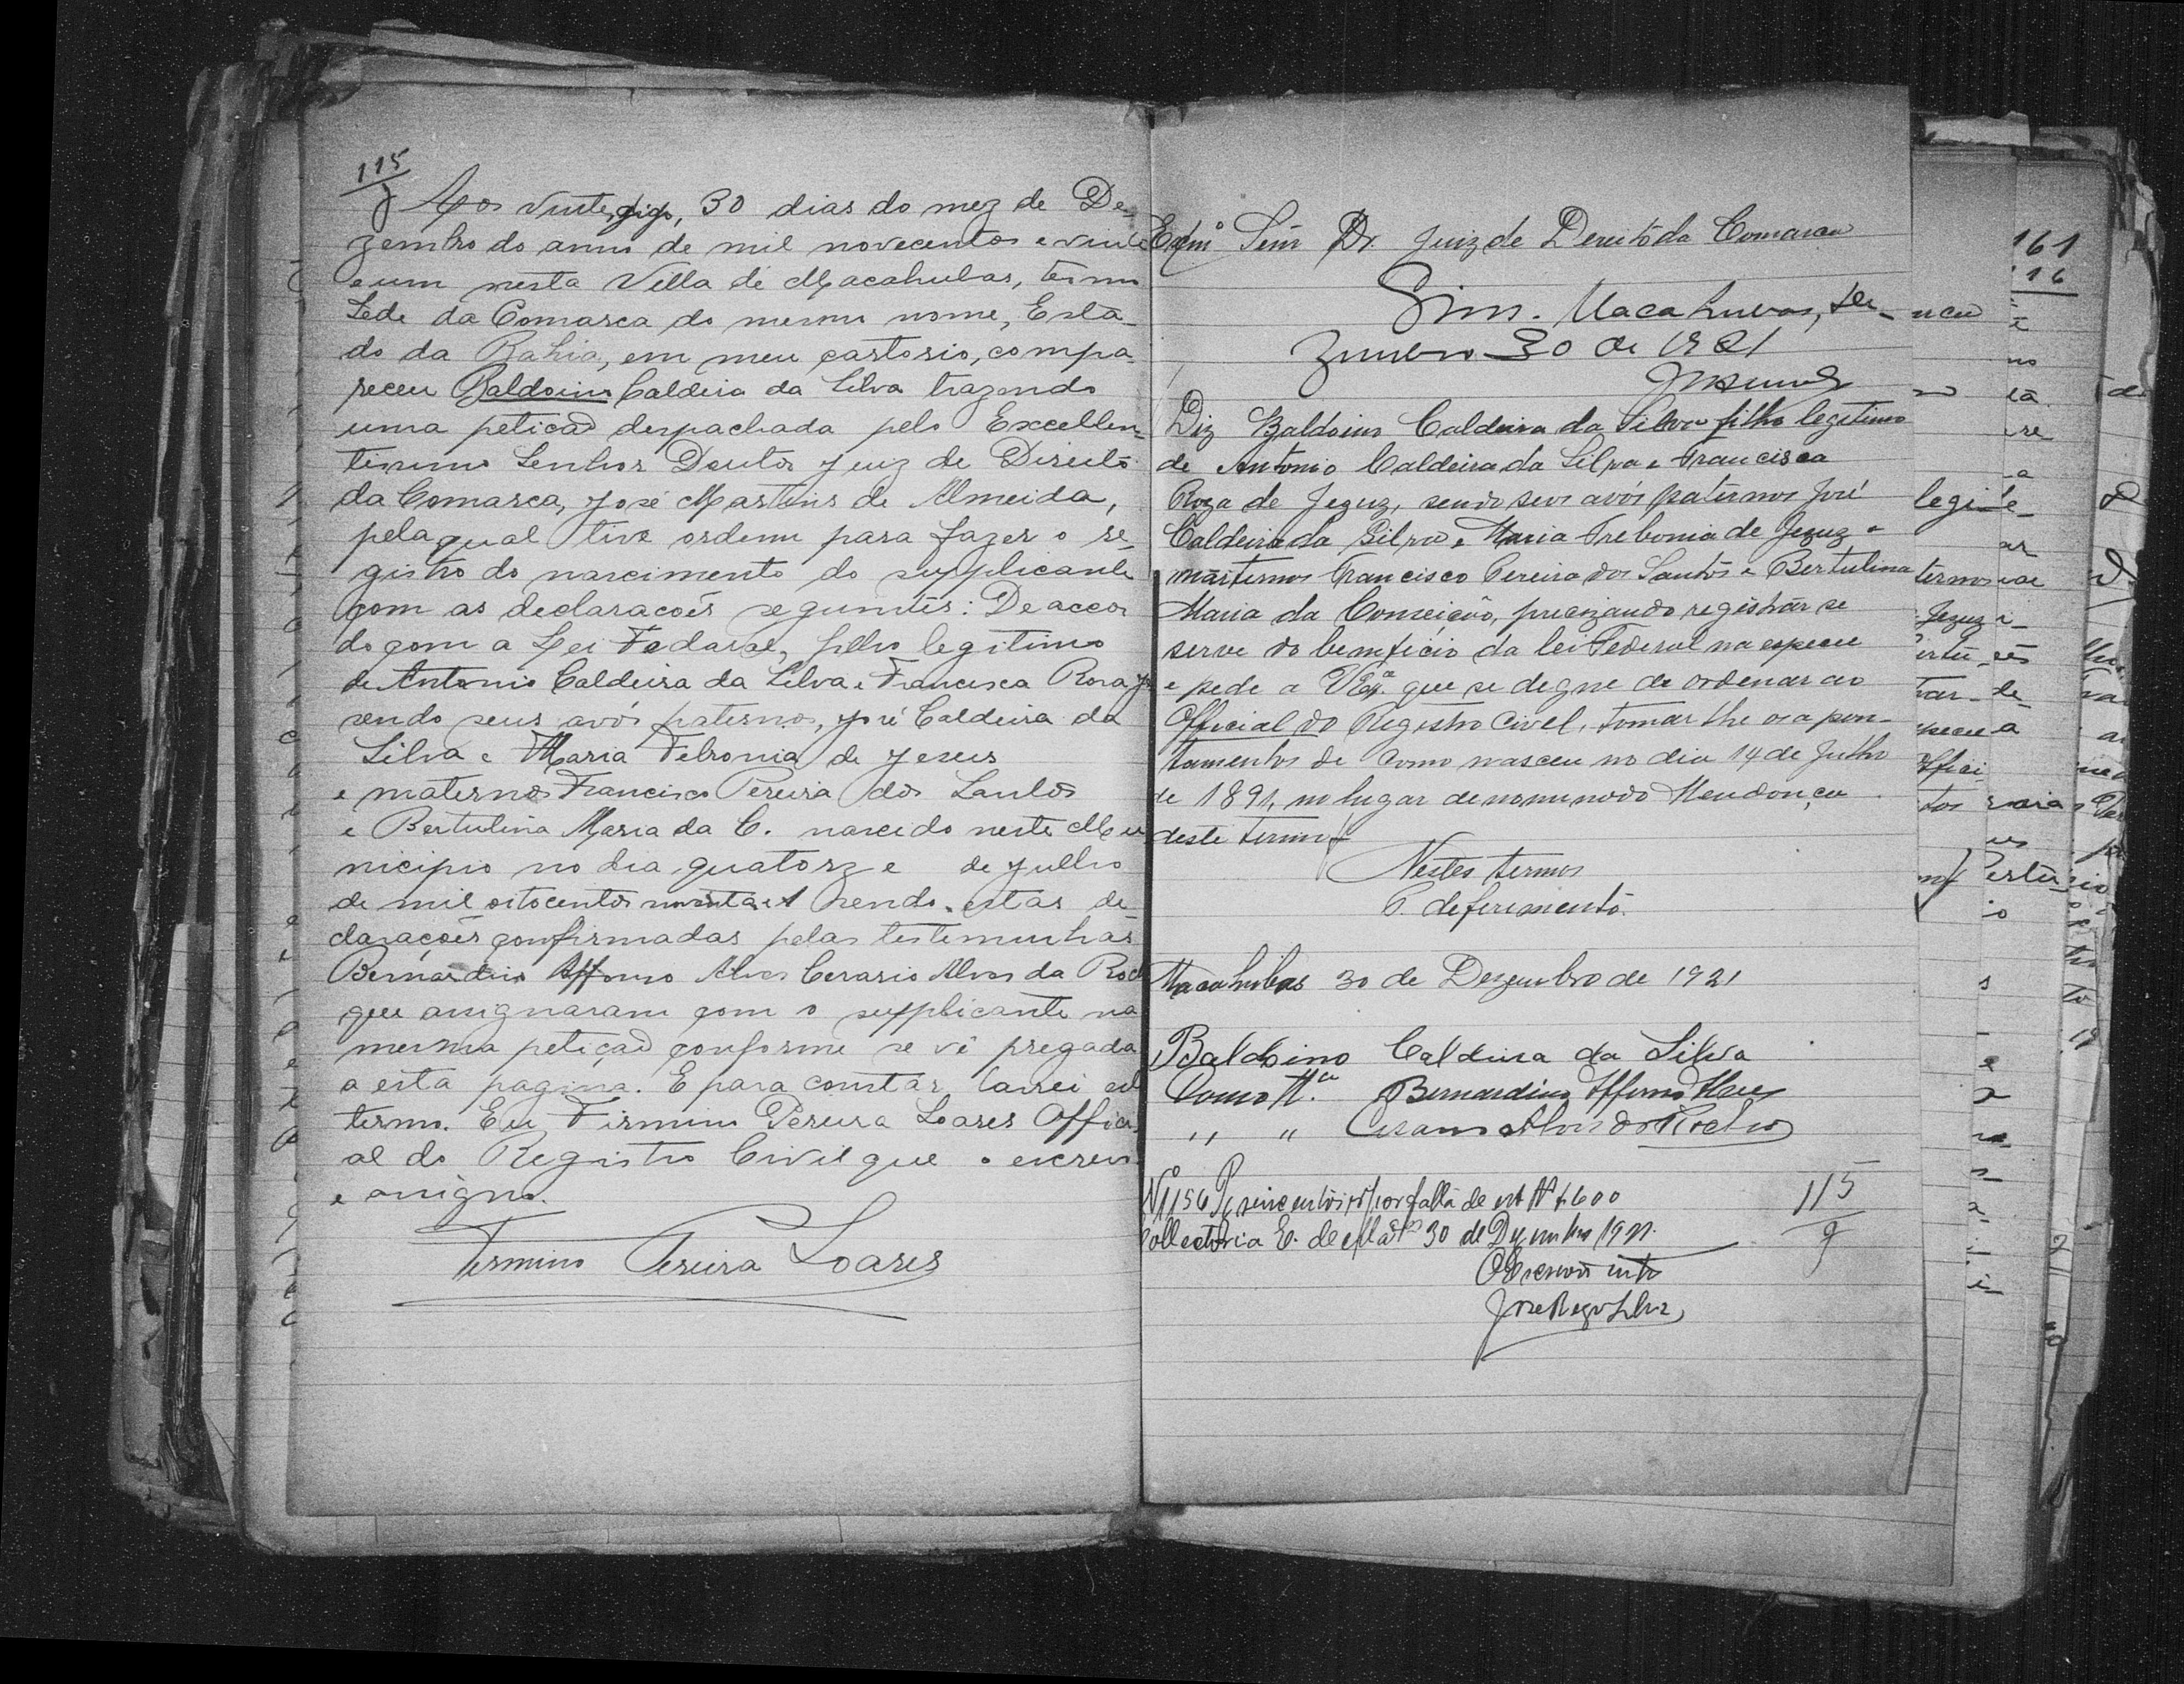 115
Aos vinte, digo, 30 dias do mez de De-
zembro do anno de mil novecentos e vinte
e um nesta Villa de Macahubas, termo
Sede da Comarca do mesmo nome, Esta-
do da Bahia, em meu cartorio, compa-
receu Baldoino Caldeira da Silva trazendo
uma petição despachada pelo Excellen-
tissimo Senhor Doutor Juiz de Direito
da Comarca, José Martins de Almeida,
pela qual tive ordem para fazer o re-
gistro do nascimento do supplicante
com as declaracoēs seguintes: De accor
do com a Lei Fedaral, filho legitimo
de Antonio Caldeira da Silva e Francisca Rosa
sendo seus avós paternos, José Caldeira da
Silva e Maria Febronia de Jesus
e maternos Francisco Pereira dos Santos
e Bertulina Maria da C. nascido neste Mu
nicipio no dia quatorze de Julho
de mil oitocentos noventa e 1 Sendo estas de-
clarações confirmadas pelas testemunhas
Bernardino Affonso Alves Cesario Alves da Roc
que assignaram com o supplicante na
mesma petição conforme se vê pregada
a esta pagina. E para constar lavrei
termo. Eu Firmino Pereira Soares Offici-
al do Registro Civil que o escrevi
e assigno.
Firmino Pereira Soares
Exmo Senr Dr. Juiz de Direito da Comarca
Sim. Macahubas, De-
zembro 30 de 1921
Diz Baldoino Caldeira da Silva filho legitimo
de Antonio Caldeira da Silva e Francisca
Roza de Jezuz, sendo seos avós paternos José
Caldeira da Silva e Maria Frebonia de Jezuz e
marternos Francisco Pereira dos Santos e Bertulina
Maria da Conseição, precizando registrar se
serve do beneficio da lei Federal na especie
e pede a V Exª. que se digne de ordenar ao
Official do Registro Civel, tomar lhe os apon-
tamentos de como nasceu no dia 14 de Julho
de 1891, no lugar denominado Mendonça
deste termo
Nestes termos
P. deferimento.
Macahubas 30 de Dezembro de 1921
Baldoino Caldeira da Silva
Como tt.as Bernardino Affonso Alves
,, ,, Cesario Alves da Rocha
Nº 1156 seiscentos rs por falta de est 600
Collectoria E. de 30 de Dezembro 1921.
O Escrivão into
José Rego Silva
115
9
161
116